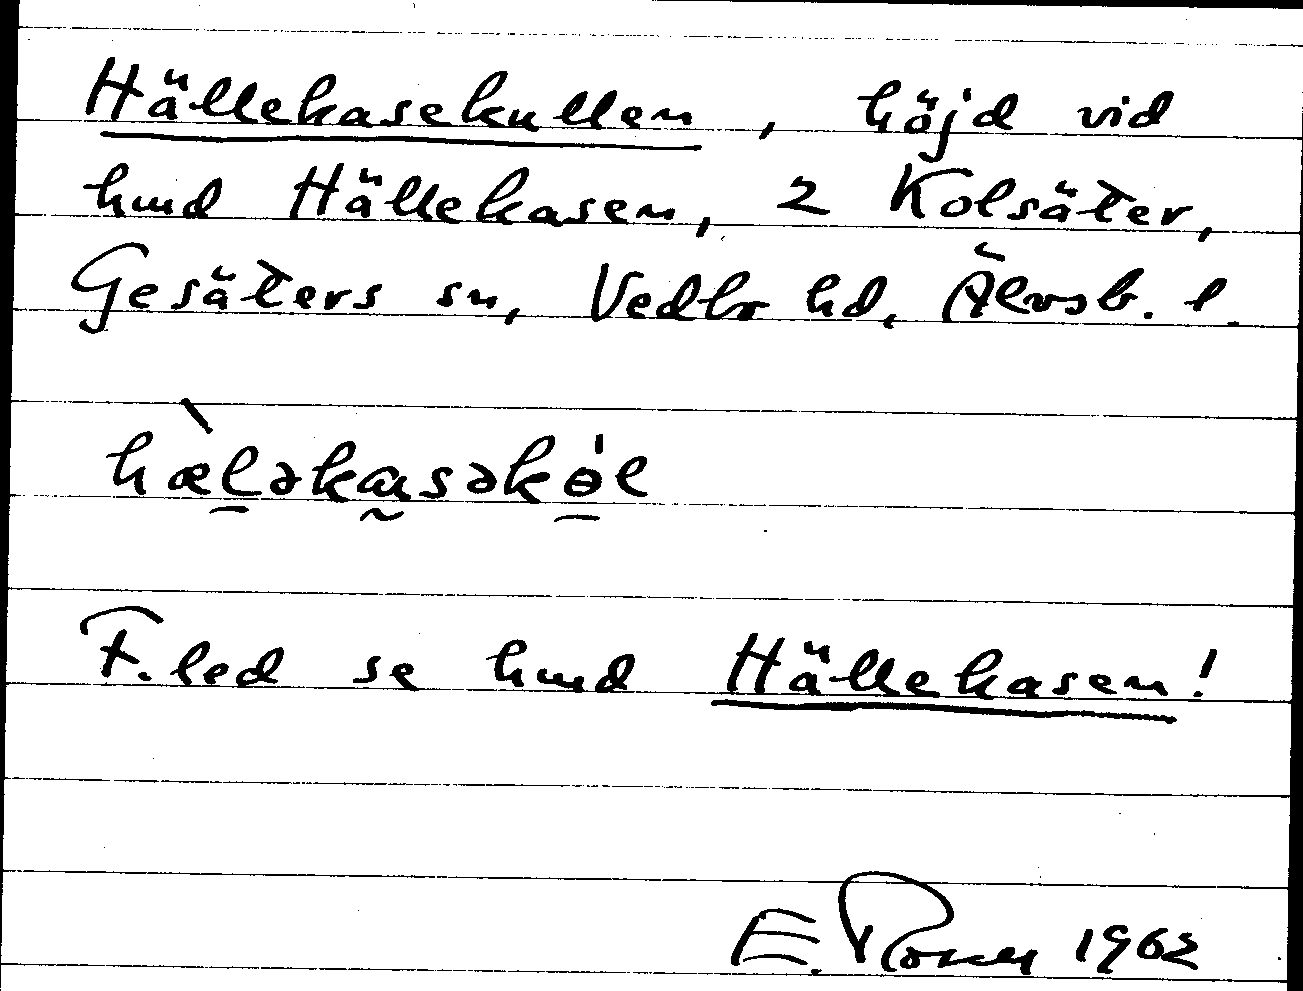 Hällekasekullen, höjd vid
hmd Hällekasen, 2 Kolsäter,
Gesäters sn, Vedbo hd, Älvsb. l.
hæ̀l̠əka̰səkɵ̠́l
F.led se hmd Hällekasen!
E. 1962